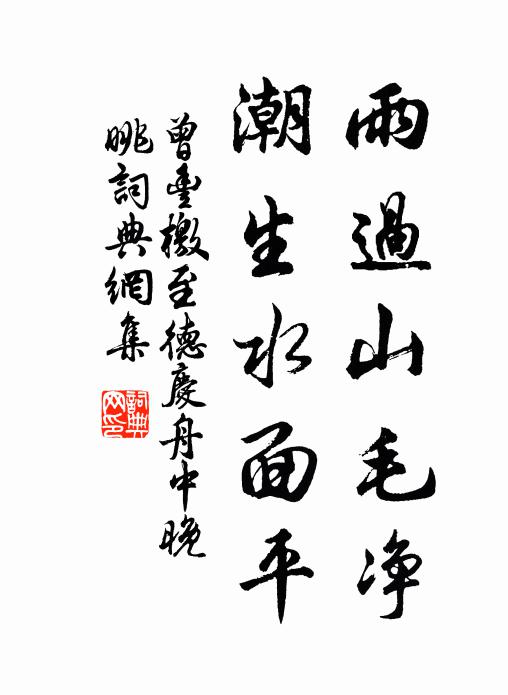 雨過山毛净
潮生水面平
曾豊檄至德慶舟中晚
眺詞典網集
詞典网印